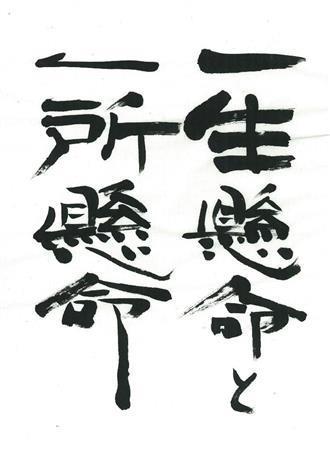 一生懸命と
一所懸命